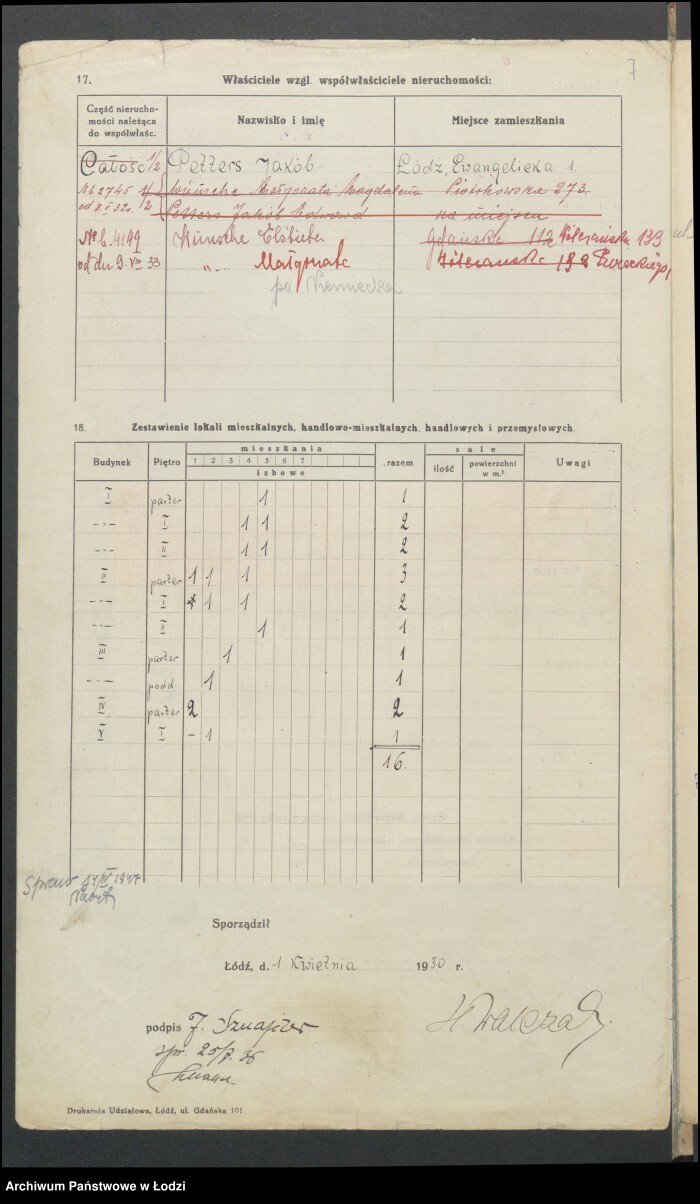 7
17. Właściciele wzgl. współwłaściciele nieruchomości:
Część nierucho-
mości należąca
do współwłaśc.
Nazwisko i imię
Miejsce zamieszkania
Całość 1/2 Petzers Jakób Łódź, Evangelicka 1.
1/2 Wünsche Małgorzata Magdalena Piotrkowska 273.
1/2 Petzers Jakób Edward na miejscu
Nr b. 4149 Wünsche Elżbieta Gdańska 112 Wólczańska 139
od dn 9. VIII 33 " Małgorzata Wólczańska
po Niemiecku
18. Zestawienie lokali mieszkalnych, handlowo-mieszkalnych, handlowych i przemysłowych.
Budynek Piętro mieszkania razem sale Uwagi
1 2 3 4 5 6 7 ilość powierzchni
w m.²
izbowe
I parter 1 1
-·- I 1 1 2
-·- II 1 1 2
II parter 1 1 1 3
-·- I 1 1 2
-·- II 1 1
III parter 1 1
-·- podd. 1 1
IV parter 2 2
V I - 1 1
16.
Sporządził
Łódź, d. 1 Kwietnia 1930 r.
podpis J. Sznajder
H. Walczak
Drukarnia Udziałowa, Łódź, ul. Gdańska 101
Archiwum Państwowe w Łodzi